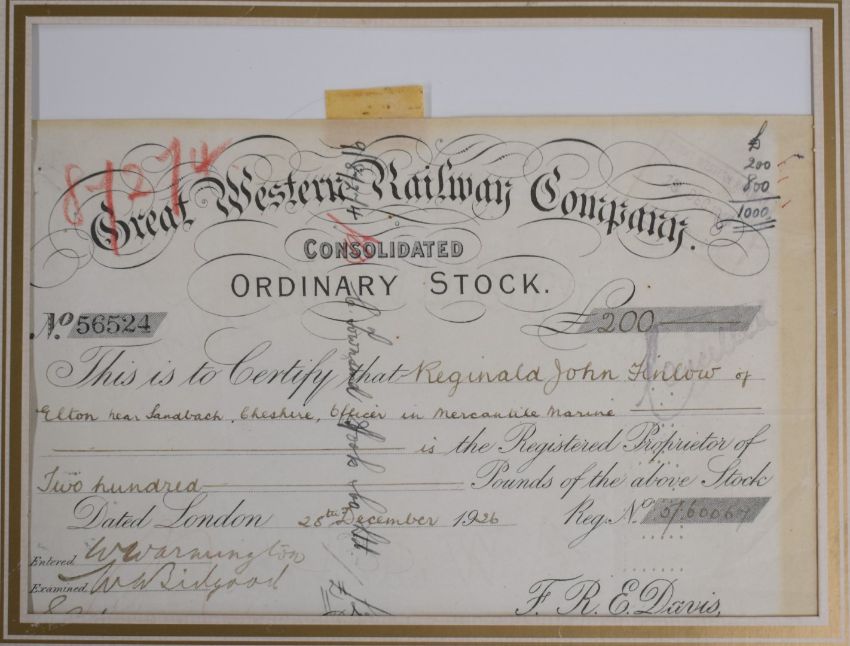 87274
£
200
800
1000
Great Western Railway Company.
CONSOLIDATED
ORDINARY STOCK.
No. 56524
£ 200
This is to Certify that Reginald John Finlow of
Elton near Sandbach, Cheshire, Officer in Mercantile Marine
is the Registered Proprietor of
Two hundred Pounds of the above Stock
Dated London 28th December 1926 Reg. No. 5/60067
Entered W Warmington
Examined W A Bidgood
F. R. E. Davis,